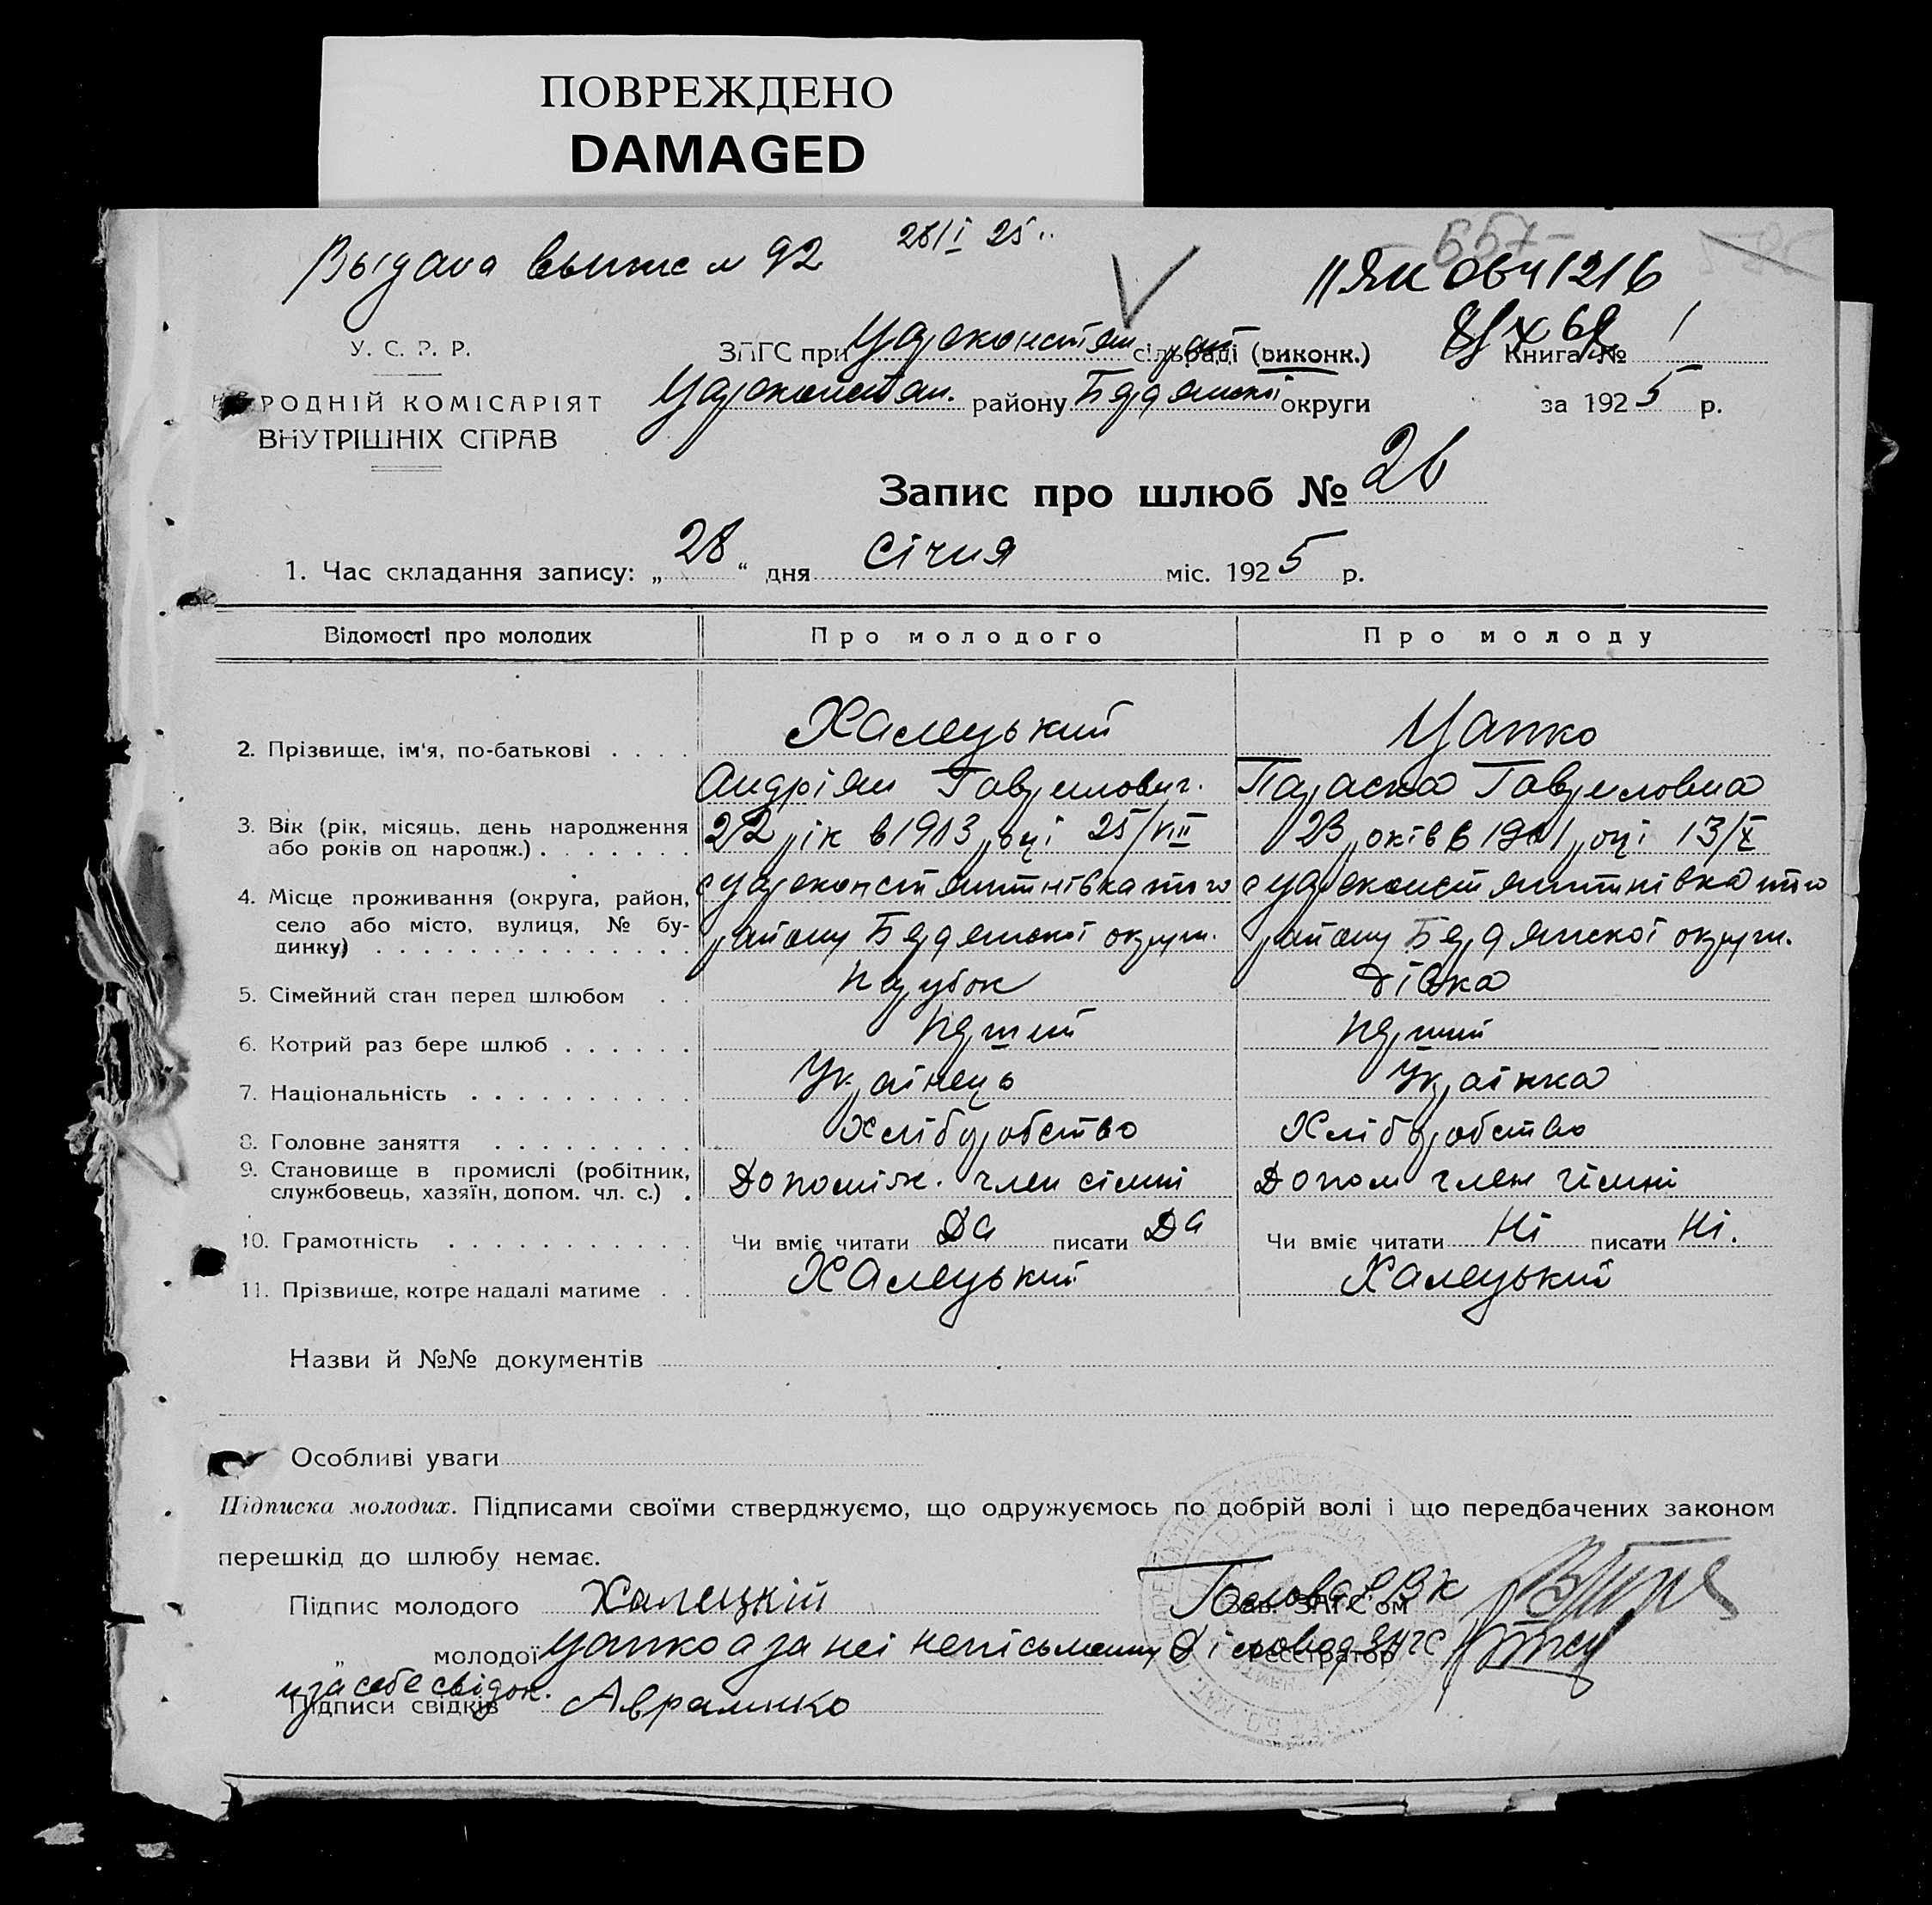 ПОВРЕЖДЕНО
DAMAGED
Выдана выпис № 92 28/I 25
ІІЯИ 0641216
У. С. Р. Р.
ЗАГС при Цареконстян сільраді (виконк.) Книга № 1
Цареконстан. району Бердянської округи за 1925 р.
НАРОДНІЙ КОМІСАРІЯТ
ВНУТРІШНІХ СПРАВ
Запис про шлюб № 26
1. Час складання запису: „28“ дня Січня міс. 1925 р.
Відомості про молодих Про молодого Про молоду
2. Прізвище, ім'я, по-батькові . . . . Халецький Цапко
Андріян Гаврилович. Параска Гавриловна
3. Вік (рік, місяць, день народження 22 рік в 1903 році 25/VII 23 років в 1901 році 13/X
або років од народж.) . . . . . . .
4. Місце проживання (округа, район, с Цареконстянтинівка того с Цареконстянтинівка того
село або місто, вулиця, № бу- району Бердянської округи. району Бердянської округи.
динку) . . . . . . . . . . . . .
5. Сімейний стан перед шлюбом . . Парубок Дівка
6. Котрий раз бере шлюб . . . . . . Перший Перший
7. Національність . . . . . . . . . . Українець Українка
8. Головне заняття . . . . . . . . . Хліборобство Хліборобство
9. Становище в промислі (робітник, Допоміж. член сімні Допом член сімні
службовець, хазяїн, допом. чл. с.) .
10. Грамотність . . . . . . . . . . . Чи вміє читати Да писати Да Чи вміє читати Ні писати Ні.
11. Прізвище, котре надалі матиме . . Халецький Халецький
Назви й №№ документів
Особливі уваги
Підписка молодих. Підписами своїми стверджуємо, що одружуємось по добрій волі і що передбачених законом
перешкід до шлюбу немає.
Підпис молодого Халецкій Голова РВК Зав. ЗАГС'ом
„ молодої Цапко а за неі неписьменну Реєстратор
и за себе свідок.
Підписи свідків Аврамнко